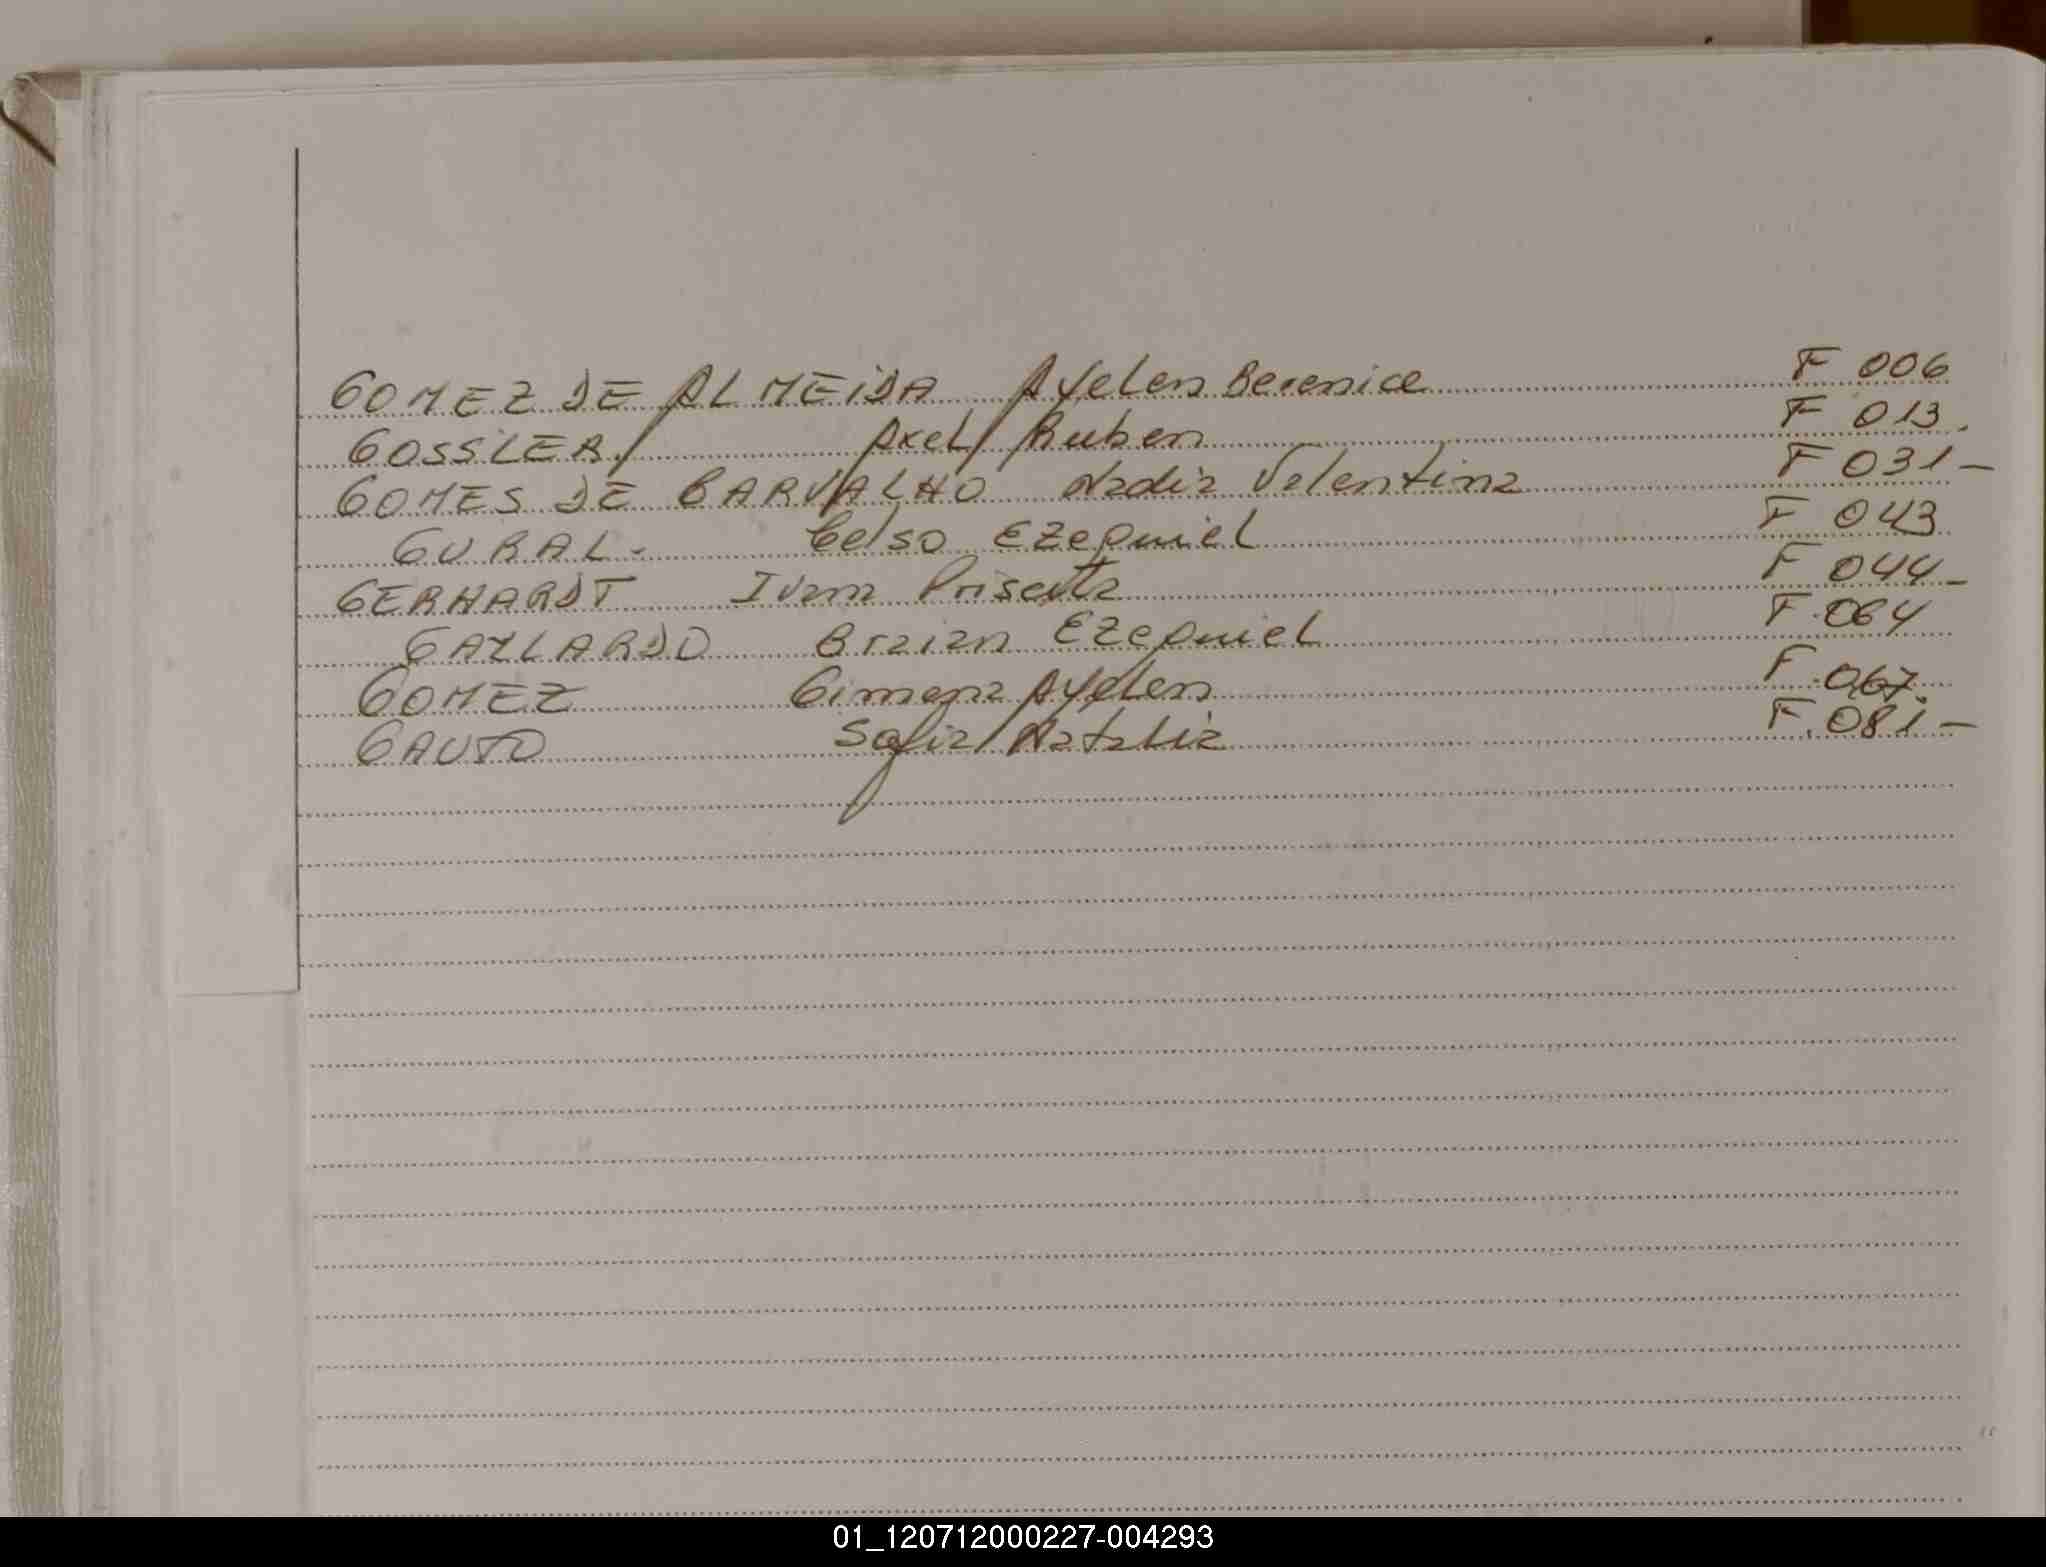 GOMEZ DE ALMEIDA Ayelen Berenice F 006
GOSSLER Axel Ruben F 013.
GOMES DE CARVALHO Nadia Valentina F 031-
GURAL. Celso Ezequiel F 043
GERHARDT Ivana F 044-
GAYLARDO Braian Ezequiel F.064
GOMEZ Gimena Ayelen F.067.
GAUTO Sofia Natalia F.081-
01_120712000227-004293